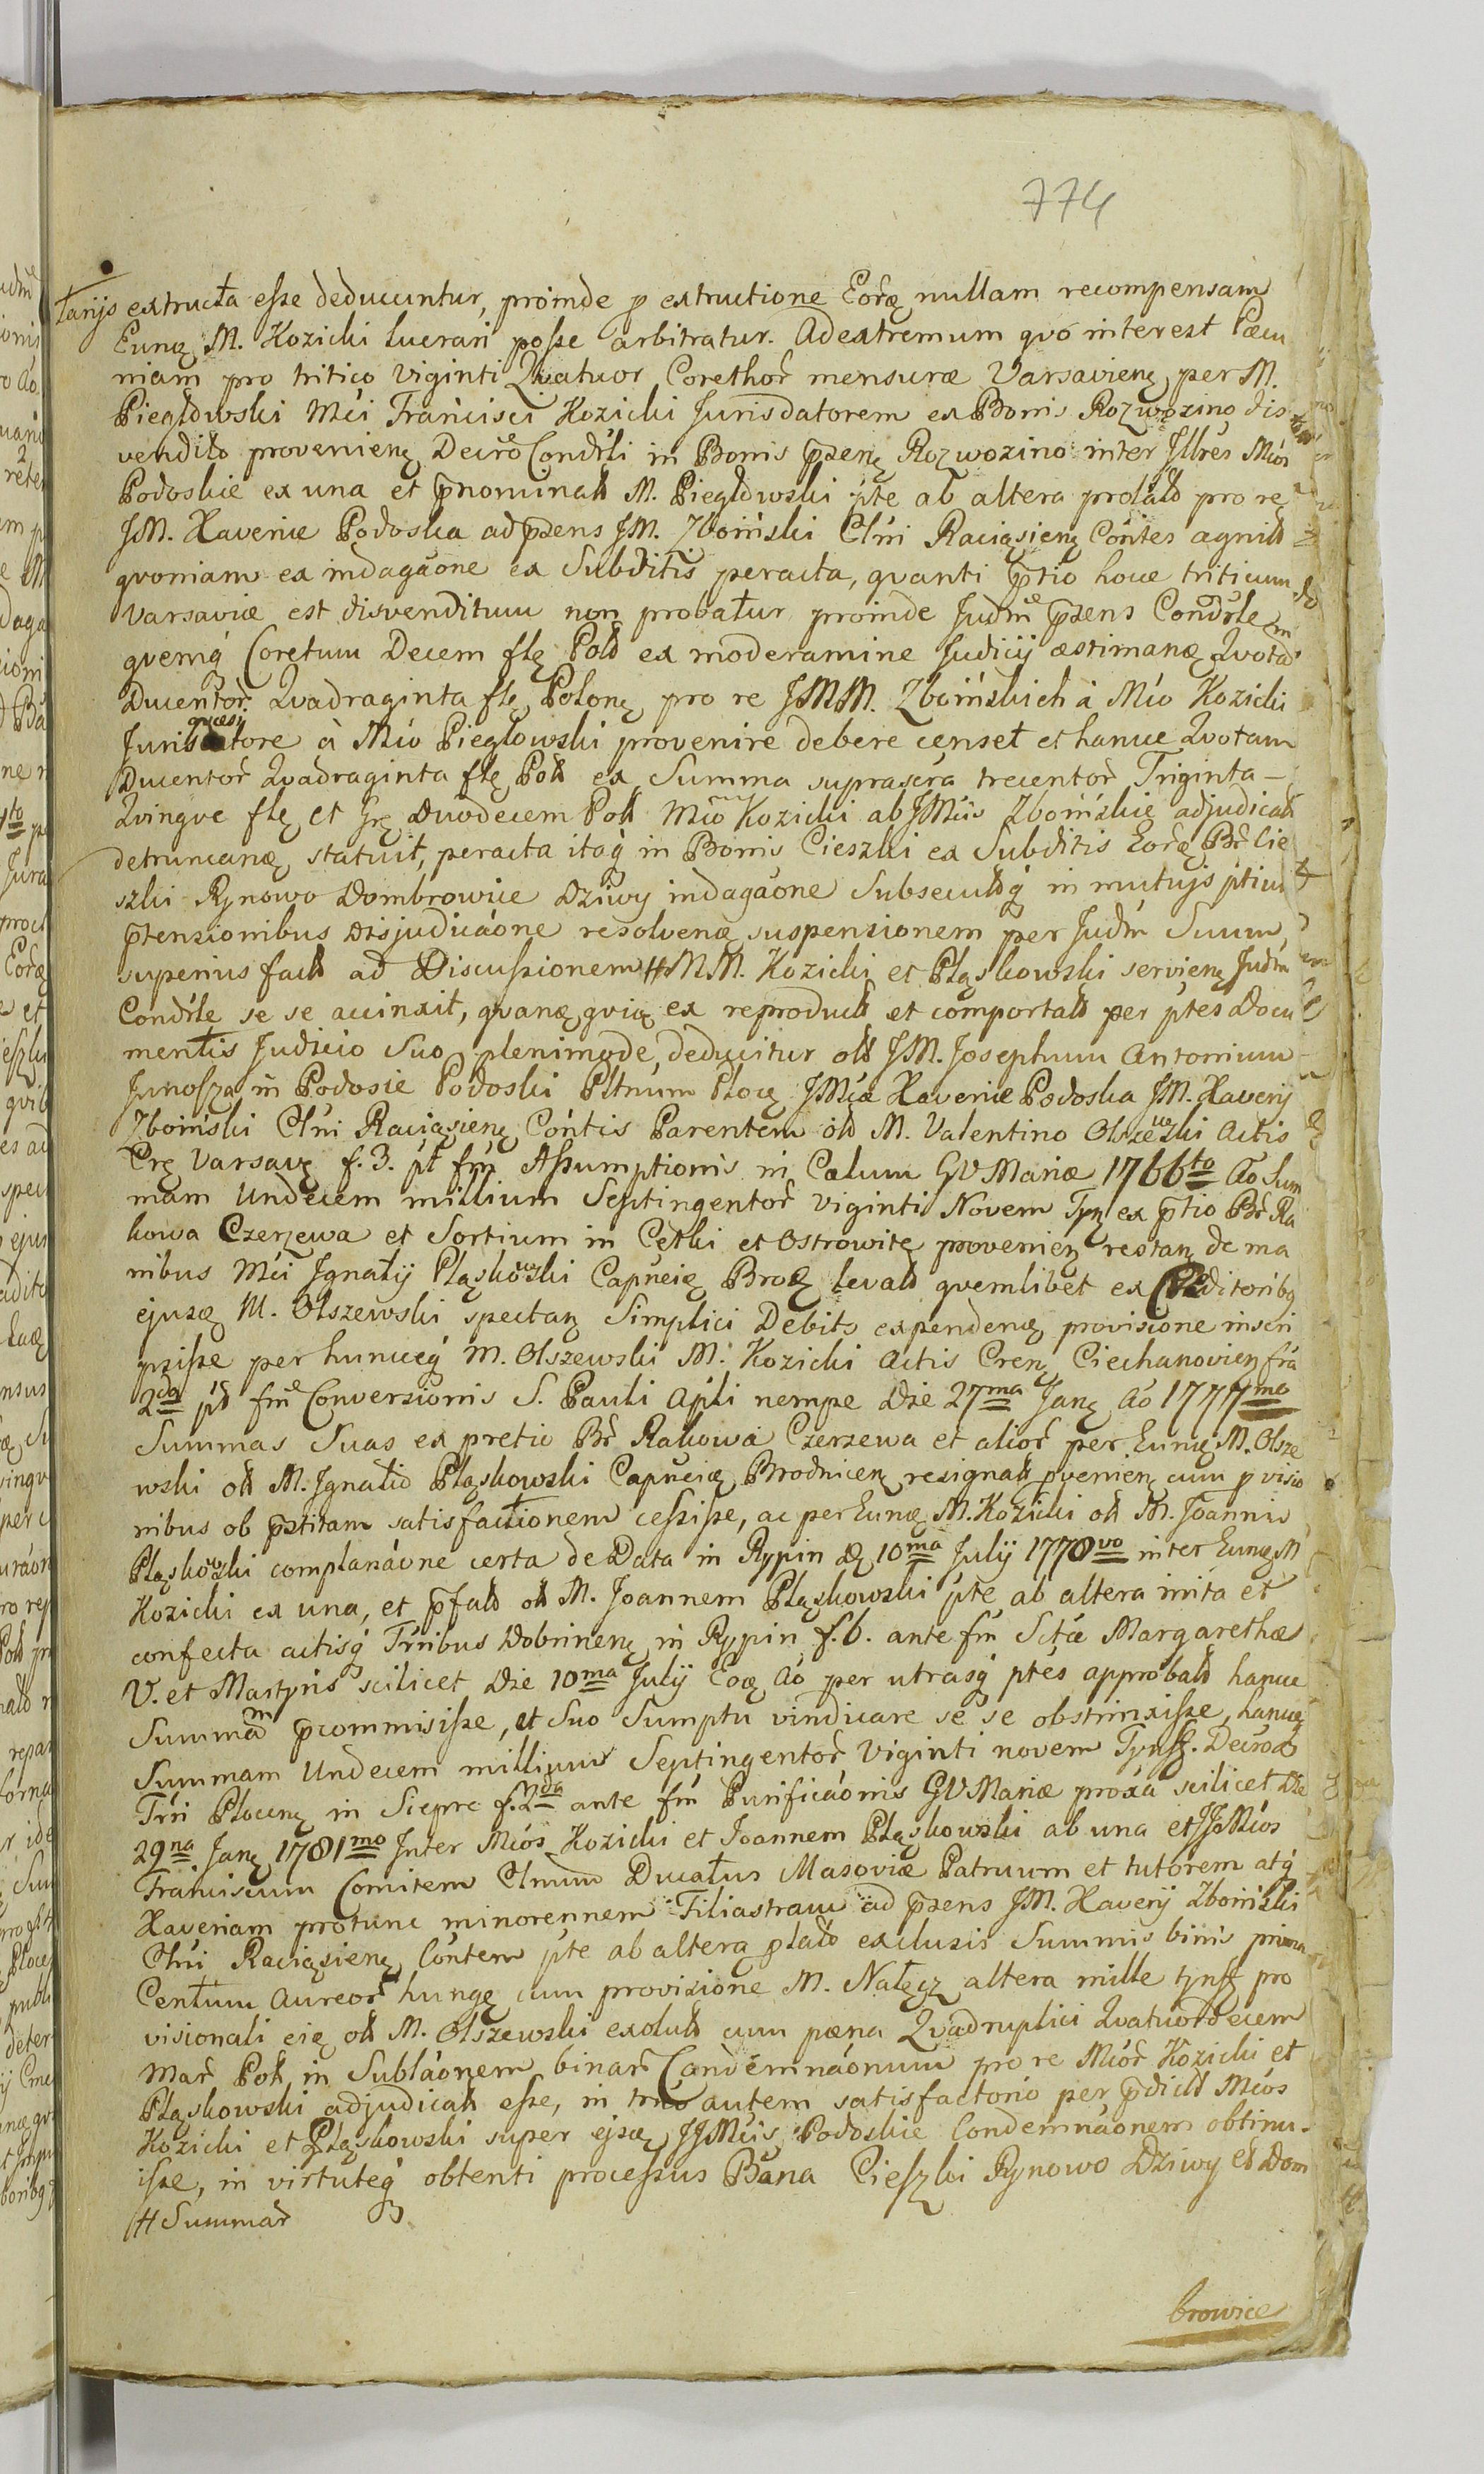 774
tarijs extructa esse deducuntur, proinde p extructione Eorꝫ nullam recompensam
Eunꝫ M. Kozicki lucrari posse arbitratur. Ad extremum qvó interest Pæcu
niam pro tritico viginti Qvatuor Corethoř mensuræ Varsavienꝫ per M.
Piegłowski Mći Francisci Kozicki Jurisdatorem ex Bonis Rozwozino dis
vendito provenienꝫ Decro Condrli in Bonis p̄senꝫ Rozwozino inter Illres Mios
Podoskie ex una et p̄nominatt M. Piegłowski pte ab altera prolatt pro re
JM. Xaveriæ Podoska ad p̄sens JM. Zboiński Cłni Raciąsienꝫ Contes agnitt
qvoniam ex indagaone ex Subditis peracta, qvanti p̄tio hocce triticum
Varsaviæ est disvenditum non probatur proinde Judm p̄sens Condrle
qvemq́ Coretum Decem flꝫ Poltt ex moderamine Judicij æstimanꝫ Qvotā
Ducentoř Qvadraginta flꝫ Polonꝫ pro re JMM. Zboińskich à Mío Kozicki
Juris qvæsitore à Mio Piegłowski provenire debere censet et hancce Qvotam
Ducentoř Qvadraginta flꝫ Poltt ex Summa suprascra trecentoř Triginta –
Qvinqve flꝫ et grꝫ duodecem Poltt Mio Kozicki ab JMiis Zboińskie adjudicatt
detruncanꝫ statuit, peracta itaq́ in Bonis Cieszki ex Subditis Eorꝫ Bř Cie
szki Rynowo Dombrowice Dziwy indagaone Subsecuttq́ in mutujs ptium
p̄tensionibus disjudicaone resolvenꝫ suspensionem per Judm Suum
superius factt ad Discussionem # MM. Kozicki et Pląskowski servienꝫ Judm
Condrle se se accinxit, qvanꝫ qviꝫ ex reproductt et comportatt per ptes Docu
mentis Judicio Suo plenimode deducitur oltt JM. Josephum Antonium
Junosza in Podosie Podoski Pltnum Płocꝫ JMiæ Xaveriæ Podoska JM. Xaverij
Zboiński Cłni Raciąsienꝫ Contis Parentem olt M. Valentino Olszewski Actis
Crꝫ Varsavꝫ f. 3. pt fm Assumptionis in Cælum GV Mariæ 1766to Ao Sum
mam Undecem millium Septingentoř viginti Novem Tynꝫ ex p̄tio Bř Ra
kowa Czerzewa et Sortium in Cetki et Ostrowitꝫ provenienꝫ restanꝫ de ma
nibus Mći Ignatij Pląskowski Capneiꝫ Brodꝫ levatt qvemlibet ex Creditoribꝫ
ejusꝫ M. Olszewski spectanꝫ Simplici Debito expendenꝫ provisione inscri
psisse per huncceq́ M. Olszewski M. Kozicki Actis Crenꝫ Ciechanovienꝫ fria
2da pt fm Conversionis S. Pauli Apli nempe Die 27ma Janꝫ Ao 1777mo
Summas Suas ex pretio Bř Rakowa Czerzewa et alioř per Eunꝫ M. Olsze
wski oltt M. Ignatio Pląskowski Capneiꝫ Brodnicenꝫ resignatt pvenienꝫ cum p visio
nibus ob p̄stitam satisfactionem cessisse, ac per Eunꝫ M. Kozicki oltt M. Joannis
Pląskowski complanacne certa de Data in Rypin dꝫ 10ma Julij 1778vo inter Eunꝫ M
Kozicki ex una, et p̄fatt oltt M. Joannem Pląskowski pte ab altera inita et
confecta actisq́ Trnibus Dobrinenꝫ in Rypin f. 6. ante fm Sctæ Margarethæ
V. et Martyris scilicet Die 10ma Julij Eoꝫ Ao per utrasq́ ptes approbatt hancce
Summam p̄commisisse, et Suo Sumptu vindicare se se obstrinxisse, hancꝫ
Summam Undecem millium Septingentoř viginti novem Tynff. Decro
Trni Plocenꝫ in Sierpc f. 2da ante fm Purificaonis GV Mariæ proxa scilicet Die
29na Janꝫ 1781mo Inter Mios Kozicki et Joannem Pląskowski ab una et JJMios
Franciscum Comitem Cłnum Ducatus Masoviæ Patruum et tutorem atq́
Xaveriam protunc minorennem Filiastram ad p̄sens JM. Xaverij Zboiński
Cłni Raciąsienꝫ Contem pte ab altera platt exclusis Summis binis prima
Centum Aureoř hungꝫ cum provisione M. Nałęcz altera mille tynff pro
visionali eiꝫ oltt M. Olszewski exolutt cum pæna Qvadruplici Qvatuordecem
Mař Poltt in Sublaonem binař Condemnaonum pro re Mioř Kozicki et
Pląskowski adjudicatt esse, in trno autem satisfactorio per p̄dictt Mios
Kozicki et Pląskowski super ejsꝫ JJMiis Podoskie Condemnaonem obtinu-
isse, in virtuteq́ obtenti processus Bana Cieszki Rynowo Dziwy et Dom
# Summař
browice